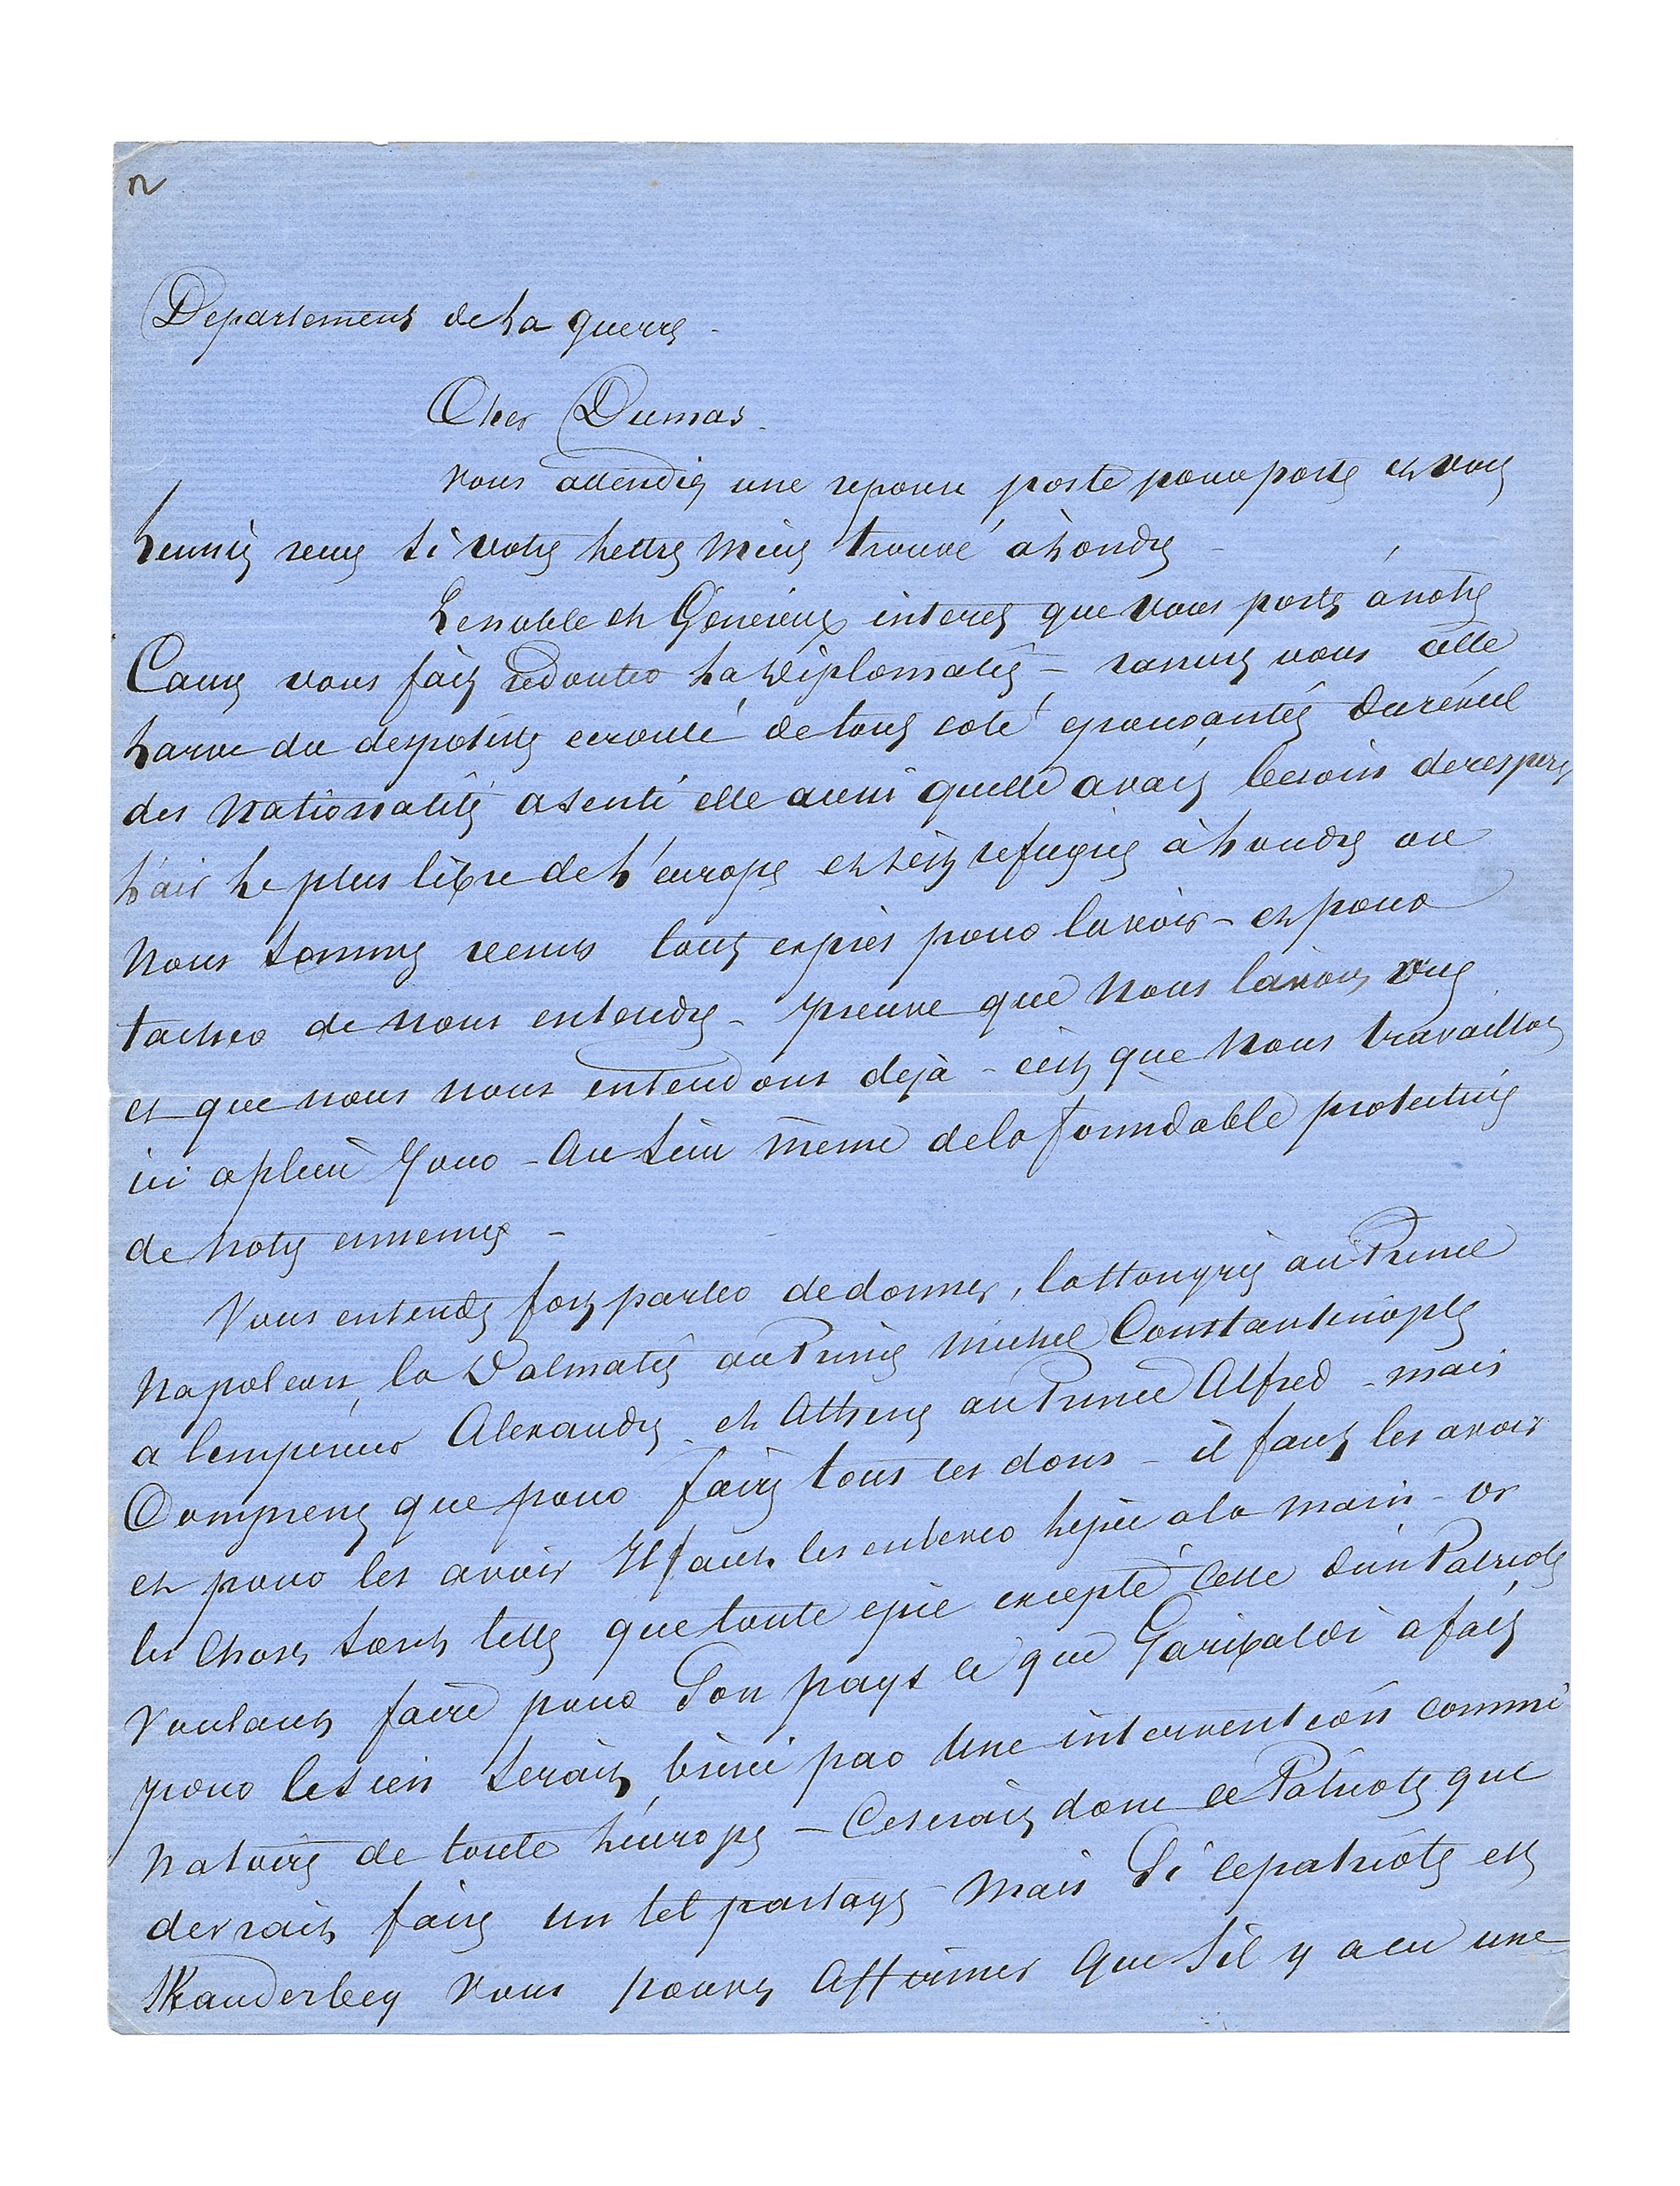 n
Departement de la guerre -
Cher Dumas.
Vous attendiez une reponse poste pour poste et vous
l'eussiez reçue si votre lettre m'eut trouvé à Londres -
Le noble et Généreux interet que vous portez à notre
Cause vous fait redouter la diplomatie - rassurez vous cette
larve du despotisme ecroulé de tous coté épouvantée du réveil
des Nationalités a senti elle aussi qu'elle avait besoin de respirer
l'air le plus libre de l'europe et s'est refugiée à Londres ou
Nous sommes venus tout exprès pour la voir - et pour
tacher de nous entendre - preuve que Nous l'avons vue
et que nous nous entendons dejà - c'est que Nous travaillons
ici a plein jour - Au sein meme de la formidable protectrice
de Notre ennemie -
Vous entendez fort parler de donner, la Hongrie au Prince
Napoleon, la Dalmatie au Prince Michel Constantinople
a l'empereur Alexandre - et Athenes au Prince Alfred - mais
Comprenez que pour faire tous ces dons - il faut les avoir
et pour les avoir Il faut les enlever l'epée a la main - or
les Choses sont telles que toute epée excepté Celle d'un Patriote
Voulant faire pour Son pays ce que Garibaldi a fait
pour le sien serait brisée par Une intervention commi
natoire de toute l'europe - Ce serait donc ce Patriote que
devrait faire un tel partage - Mais Si ce patriote est
Skanderbeg Vous pouvez Affirmer Que S'il y a eu une